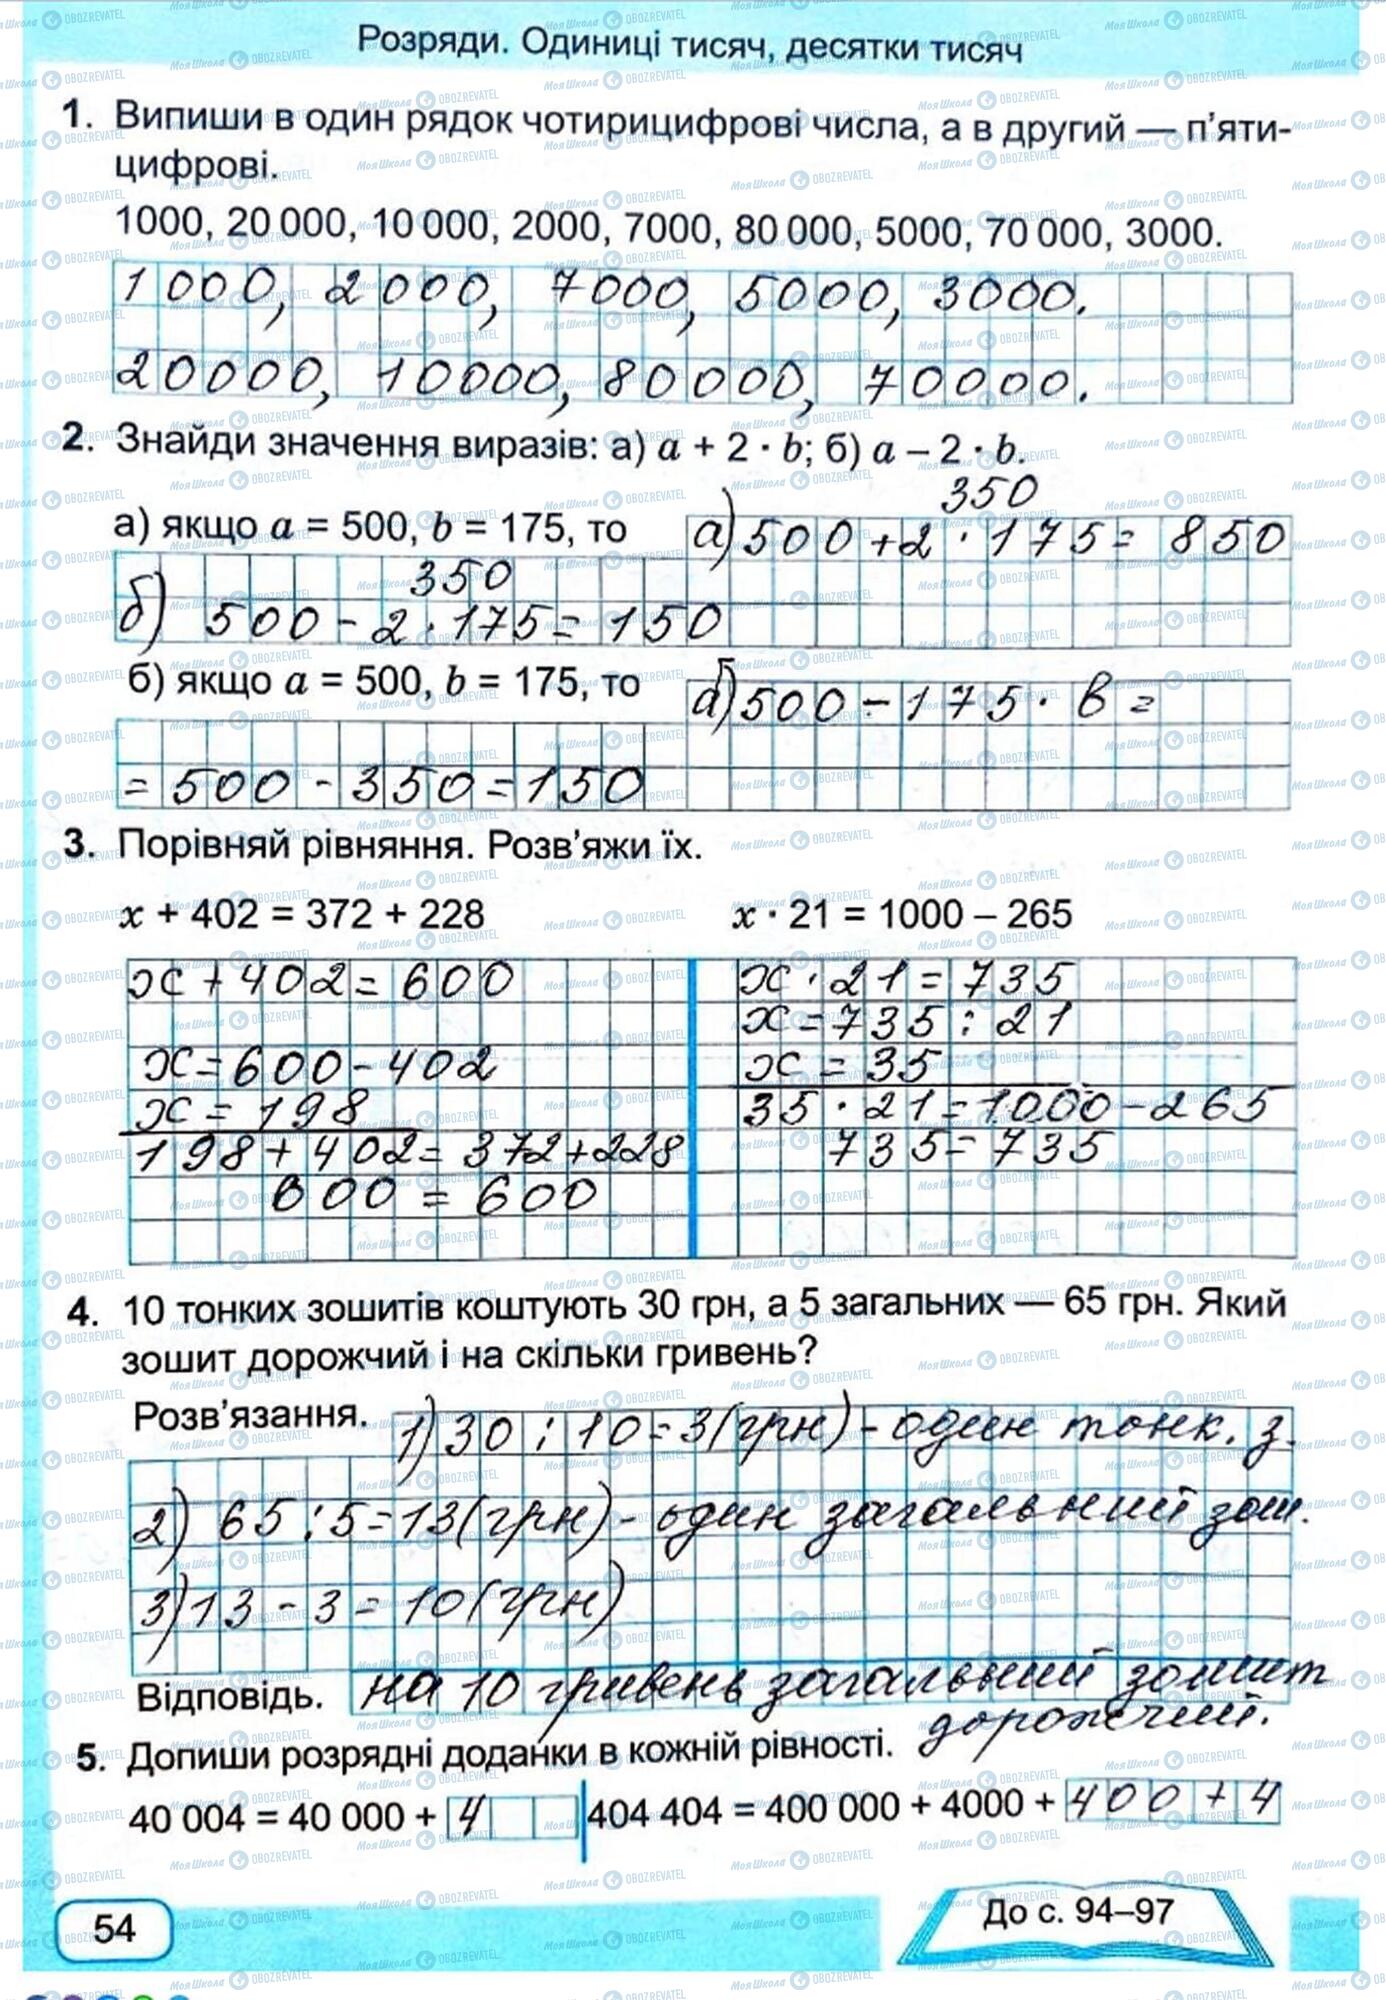 Розряди. Одиниці тисяч, десятки тисяч
1. Випиши в один рядок чотирицифрові числа, а в другий — п'яти-
цифрові.
1000, 20 000, 10 000, 2000, 7000, 80 000, 5000, 70 000, 3000.
1000, 2000, 7000, 5000, 3000.
20000, 10000, 80000, 70000.
2. Знайди значення виразів: а) a + 2 · b; б) a – 2 · b.
350
а) якщо a = 500, b = 175, то а) 500 + 2 · 175 = 850
350
б) 500 - 2 · 175 = 150
б) якщо a = 500, b = 175, то б) 500 - 175 · в =
= 500 - 350 = 150
3. Порівняй рівняння. Розв'яжи їх.
x + 402 = 372 + 228 x · 21 = 1000 – 265
x + 402 = 600 x · 21 = 735
x = 735 : 21
x = 600 - 402 x = 35
x = 198 35 · 21 = 1000 - 265
198 + 402 = 372 + 228 735 = 735
600 = 600
4. 10 тонких зошитів коштують 30 грн, а 5 загальних — 65 грн. Який
зошит дорожчий і на скільки гривень?
Розв'язання. 1) 30 : 10 = 3 (грн) - один тонк. з.
2) 65 : 5 = 13 (грн) - один загальний зош.
3) 13 - 3 = 10 (грн)
Відповідь. на 10 гривень загальний зошит
дорожчий.
5. Допиши розрядні доданки в кожній рівності.
40 004 = 40 000 + 4 404 404 = 400 000 + 4000 + 400 + 4
54 До с. 94–97
МояШкола OBOZREVATEL